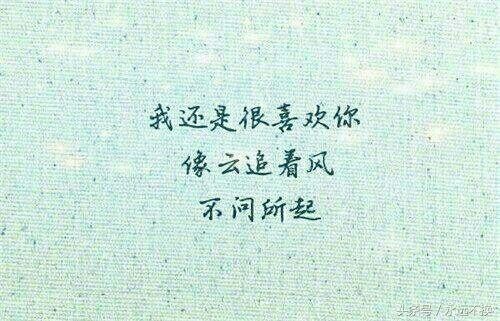 我还是很喜欢你
像云追着风
不问所起
头条号/永远不投